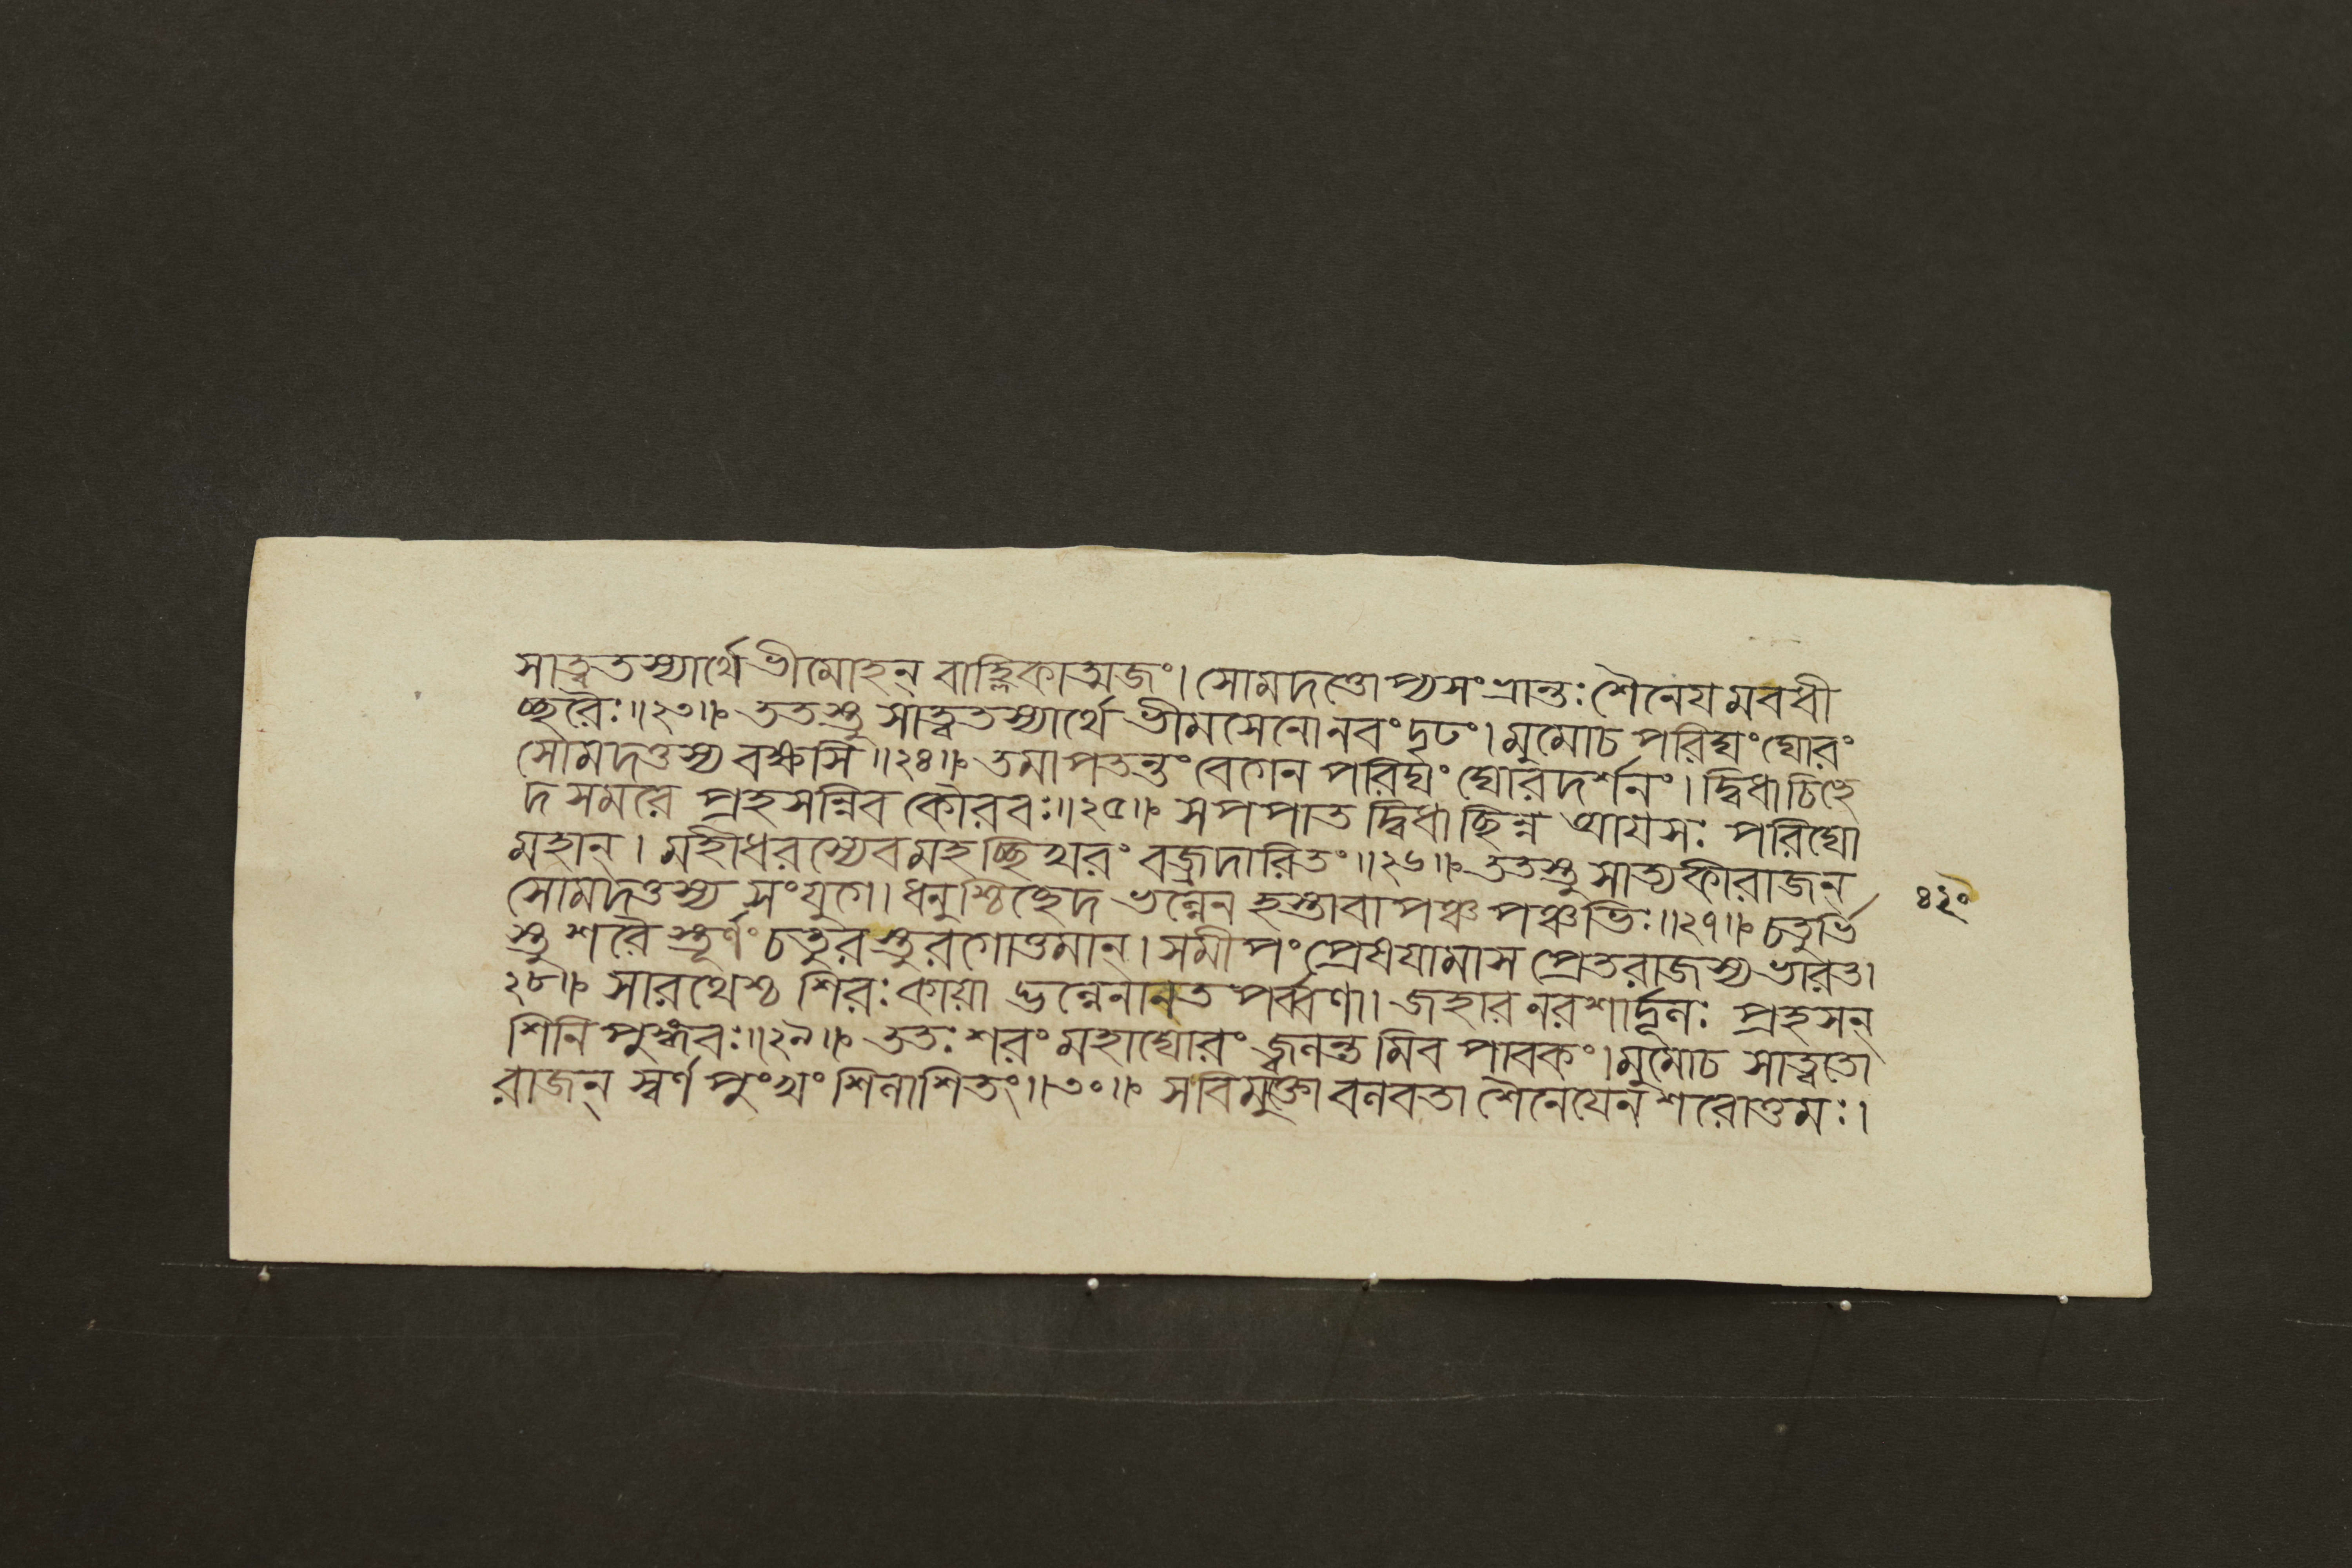 সাত্বতস্যার্থে ভীমোহন্ বাহ্লিকাত্মজং। সোমদত্তোপ্যসংভ্রান্তঃ শৈনেযমবধী
চ্ছরৈঃ॥২৩॥ ততস্তু সাত্বতস্যার্থে ভীমসেনো নবং দৃঢং। মুমোচ পরিঘং ঘোরং
সোমদত্তস্য বক্ষসি॥২৪॥ তমাপতন্তং বেগেন পরিঘং ঘোরদর্শনং। দ্বিধা চিচ্ছে
দ সমরে প্রহসন্নিব কৌরবঃ॥২৫॥ স পপাত দ্বিধাছিন্ন আযসঃ পরিঘো
মহান্। মহীধরস্যেব মহচ্ছিখরং বজ্রদারিতং॥২৬॥ ততস্তু সাত্যকী রাজন্
সোমদত্তস্য সংযুগে। ধনুশ্চিচ্ছেদ ভল্লেন হস্তাবাপঞ্চ পঞ্চভিঃ॥২৭॥ চতুর্ভি
স্তু শরৈস্তূর্ণং চতুরস্তুরগোত্তমান্। সমীপং প্রেষযামাস প্রেতরাজস্য ভারত।
২৮॥ সারথেশ্চ শিরঃ কাযা দ্ভল্লেনানতপর্ব্বণা। জহার নরশার্দূলঃ প্রহসন্
শিনিপুঙ্গবঃ॥২৯॥ ততঃ শরং মহাঘোরং জ্বলন্তমিব পাবকং। মুমোচ সাত্বতো
রাজন্ স্বর্ণপুংখং শিলাশিতং॥৩০॥ স বিমুক্তো বলবতা শৈনেযেন শরোত্তমঃ।
৪২০